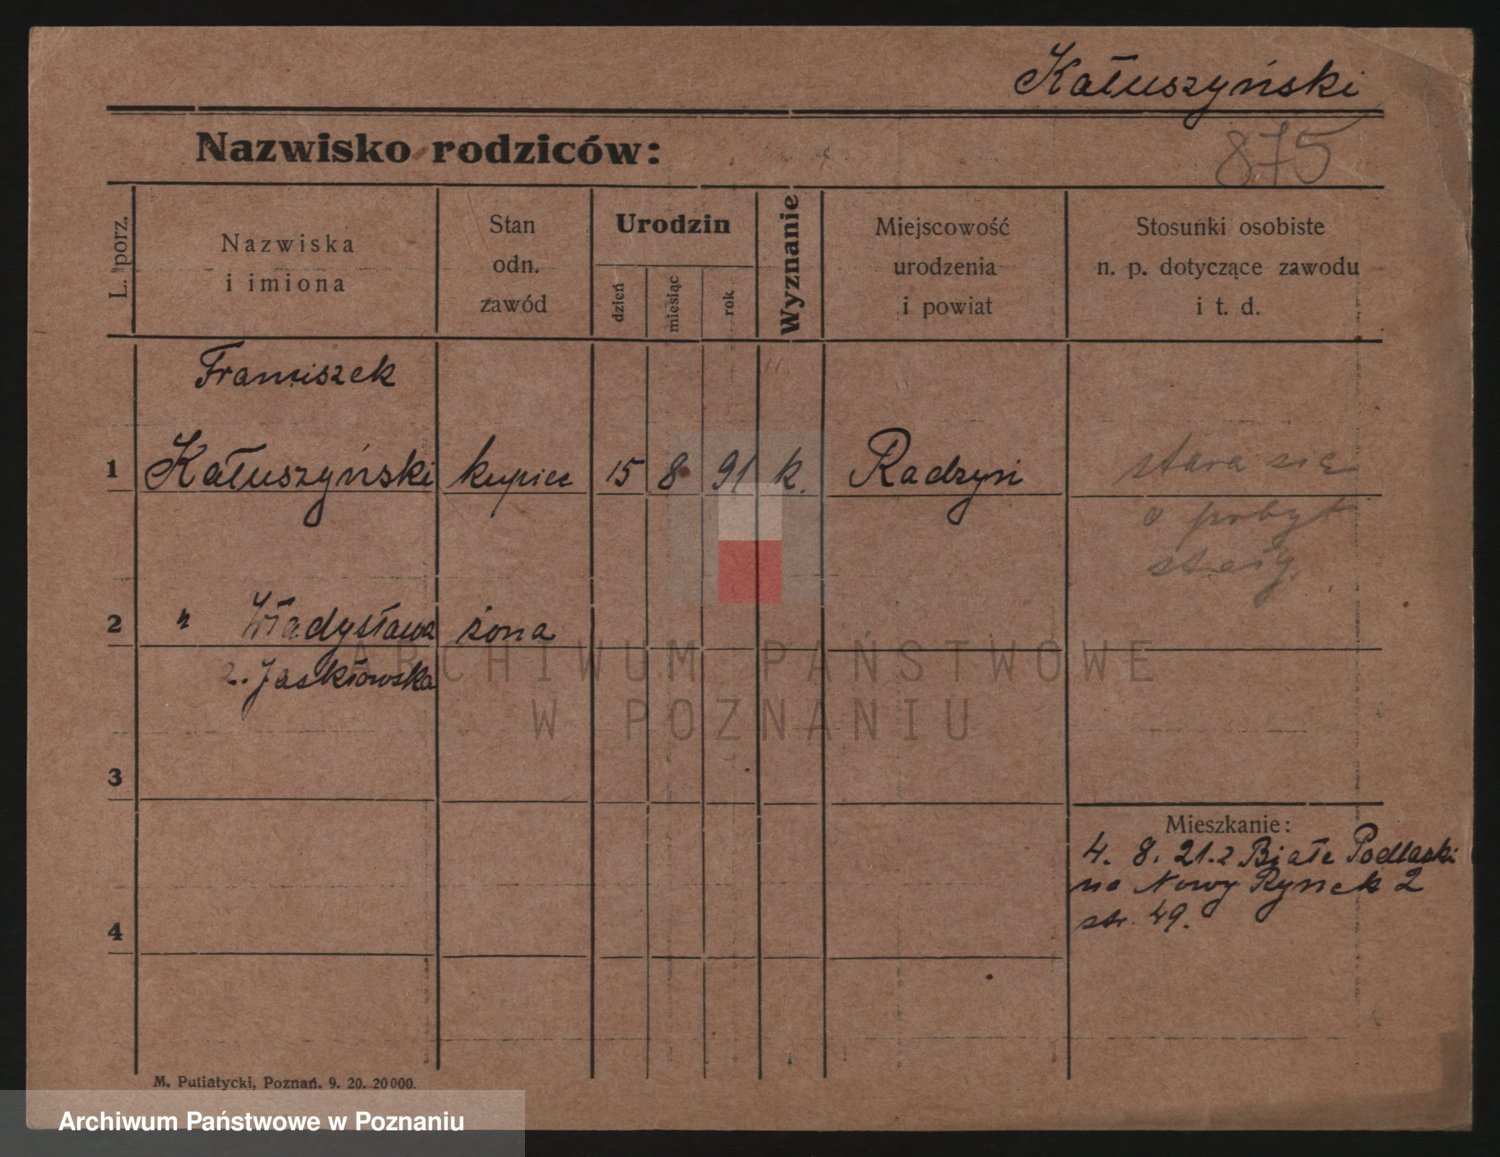 Kałuszyński
875
Nazwisko rodziców:
L. porz.
Nazwiska
i imiona
Stan
odn.
zawód
Urodzin
dzień
miesiąc
rok
Wyznanie
Miejscowość
urodzenia
i powiat
Stosunki osobiste
n. p. dotyczące zawodu
i t. d.
Franciszek
1 Kałuszyński kupiec 15 8 91 k. Radzyń stara się
o pobyt
2 " Władysława żona
z. Jaskłowska
ARCHIWUM PAŃSTWOWE
W POZNANIU
3
Mieszkanie:
4. 8. 21. z Białe Podlaski
na Nowy Rynek 2
str. 49.
4
M. Putiatycki, Poznań. 9. 20. 20000.
Archiwum Państwowe w Poznaniu